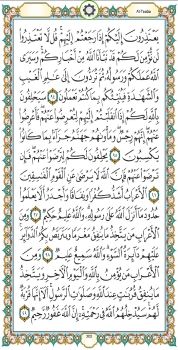 At-Taoba
يَعْتَذِرُونَ إِلَيْكُمْ إِذَا رَجَعْتُمْ إِلَيْهِمْ قُل لَّا تَعْتَذِرُوا۟
لَن نُّؤْمِنَ لَكُمْ قَدْ نَبَّأَنَا ٱللَّهُ مِنْ أَخْبَارِكُمْ وَسَيَرَى
ٱللَّهُ عَمَلَكُمْ وَرَسُولُهُۥ ثُمَّ تُرَدُّونَ إِلَىٰ عَٰلِمِ ٱلْغَيْبِ
وَٱلشَّهَٰدَةِ فَيُنَبِّئُكُم بِمَا كُنتُمْ تَعْمَلُونَ ٩٤ سَيَحْلِفُونَ
بِٱللَّهِ لَكُمْ إِذَا ٱنقَلَبْتُمْ إِلَيْهِمْ لِتُعْرِضُوا۟ عَنْهُمْ فَأَعْرِضُوا۟
عَنْهُمْ إِنَّهُمْ رِجْسٌ وَمَأْوَىٰهُمْ جَهَنَّمُ جَزَآءًۢ بِمَا كَانُوا۟
يَكْسِبُونَ ٩٥ يَحْلِفُونَ لَكُمْ لِتَرْضَوْا۟ عَنْهُمْ فَإِن
تَرْضَوْا۟ عَنْهُمْ فَإِنَّ ٱللَّهَ لَا يَرْضَىٰ عَنِ ٱلْقَوْمِ ٱلْفَٰسِقِينَ
٩٦ ٱلْأَعْرَابُ أَشَدُّ كُفْرًا وَنِفَاقًا وَأَجْدَرُ أَلَّا يَعْلَمُوا۟
حُدُودَ مَآ أَنزَلَ ٱللَّهُ عَلَىٰ رَسُولِهِۦ وَٱللَّهُ عَلِيمٌ حَكِيمٌ ٩٧ وَمِنَ
ٱلْأَعْرَابِ مَن يَتَّخِذُ مَا يُنفِقُ مَغْرَمًا وَيَتَرَبَّصُ بِكُمُ ٱلدَّوَآئِرَ
عَلَيْهِمْ دَآئِرَةُ ٱلسَّوْءِ وَٱللَّهُ سَمِيعٌ عَلِيمٌ ٩٨ وَمِنَ
ٱلْأَعْرَابِ مَن يُؤْمِنُ بِٱللَّهِ وَٱلْيَوْمِ ٱلْءَاخِرِ وَيَتَّخِذُ
مَا يُنفِقُ قُرُبَٰتٍ عِندَ ٱللَّهِ وَصَلَوَٰتِ ٱلرَّسُولِ أَلَآ إِنَّهَا قُرْبَةٌ
لَّهُمْ سَيُدْخِلُهُمُ ٱللَّهُ فِى رَحْمَتِهِۦٓ إِنَّ ٱللَّهَ غَفُورٌ رَّحِيمٌ ٩٩